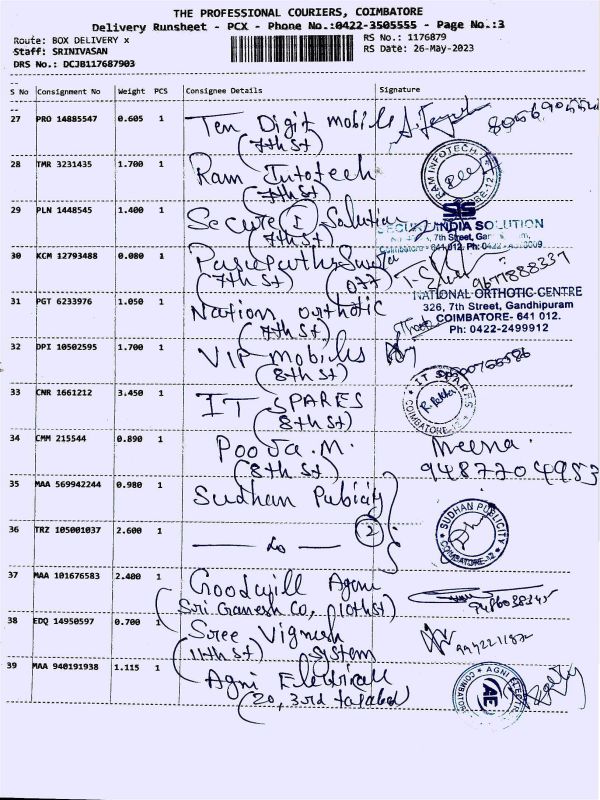 THE PROFESSIONAL COURIERS, COIMBATORE
Delivery Runsheet - PCX - Phone No.:0422-3505555 - Page No.:3
Route: BOX DELIVERY x RS No.: 1176879
Staff: SRINIVASAN RS Date: 26-May-2023
DRS No.: DCJB117687903
S No Consignment No Weight PCS Consignee Details Signature
27 PRO 14885547 0.605 1 Ten Digit mobile
(7th St)
28 TMR 3231435 1.700 1 Ram Infotech RAM INFOTECH
(7th St)
29 PLN 1448545 1.400 1 Secure I Solution SIS
SECURE INDIA SOLUTION
(7th St) 7th Street,
Coimbatore - 641 012. Ph: 0422
30 KCM 12793488 0.080 1
(7th St) (077) 9677888337
31 PGT 6233976 1.050 1 Nation orthotic NATIONAL ORTHOTIC CENTRE
326, 7th Street, Gandhipuram
(7th St) COIMBATORE- 641 012.
Ph: 0422-2499912
32 DPI 10502595 1.700 1 VIP mobiles
(8th St)
33 CNR 1661212 3.450 1 IT SPARES IT SPARES
(8th St) COIMBATORE-12
34 CMM 215544 0.890 1 Pooja. M. Meena.
(8th St) 94877204953
35 MAA 569942244 0.980 1 Sudhan Pubicity
SUDHAN PUBLICITY
36 TRZ 105001037 2.600 1 — do — 2
COIMBATORE-12
37 MAA 101676583 2.400 1 Goodwill Agen
(Sri Ganesh Co, 10th St)
38 EDQ 14950597 0.700 1 Sree Vignesh
(11th St) System
39 MAA 940191938 1.115 1 Agni Electricall AGNI ELECTR
AE
(20, 3rd